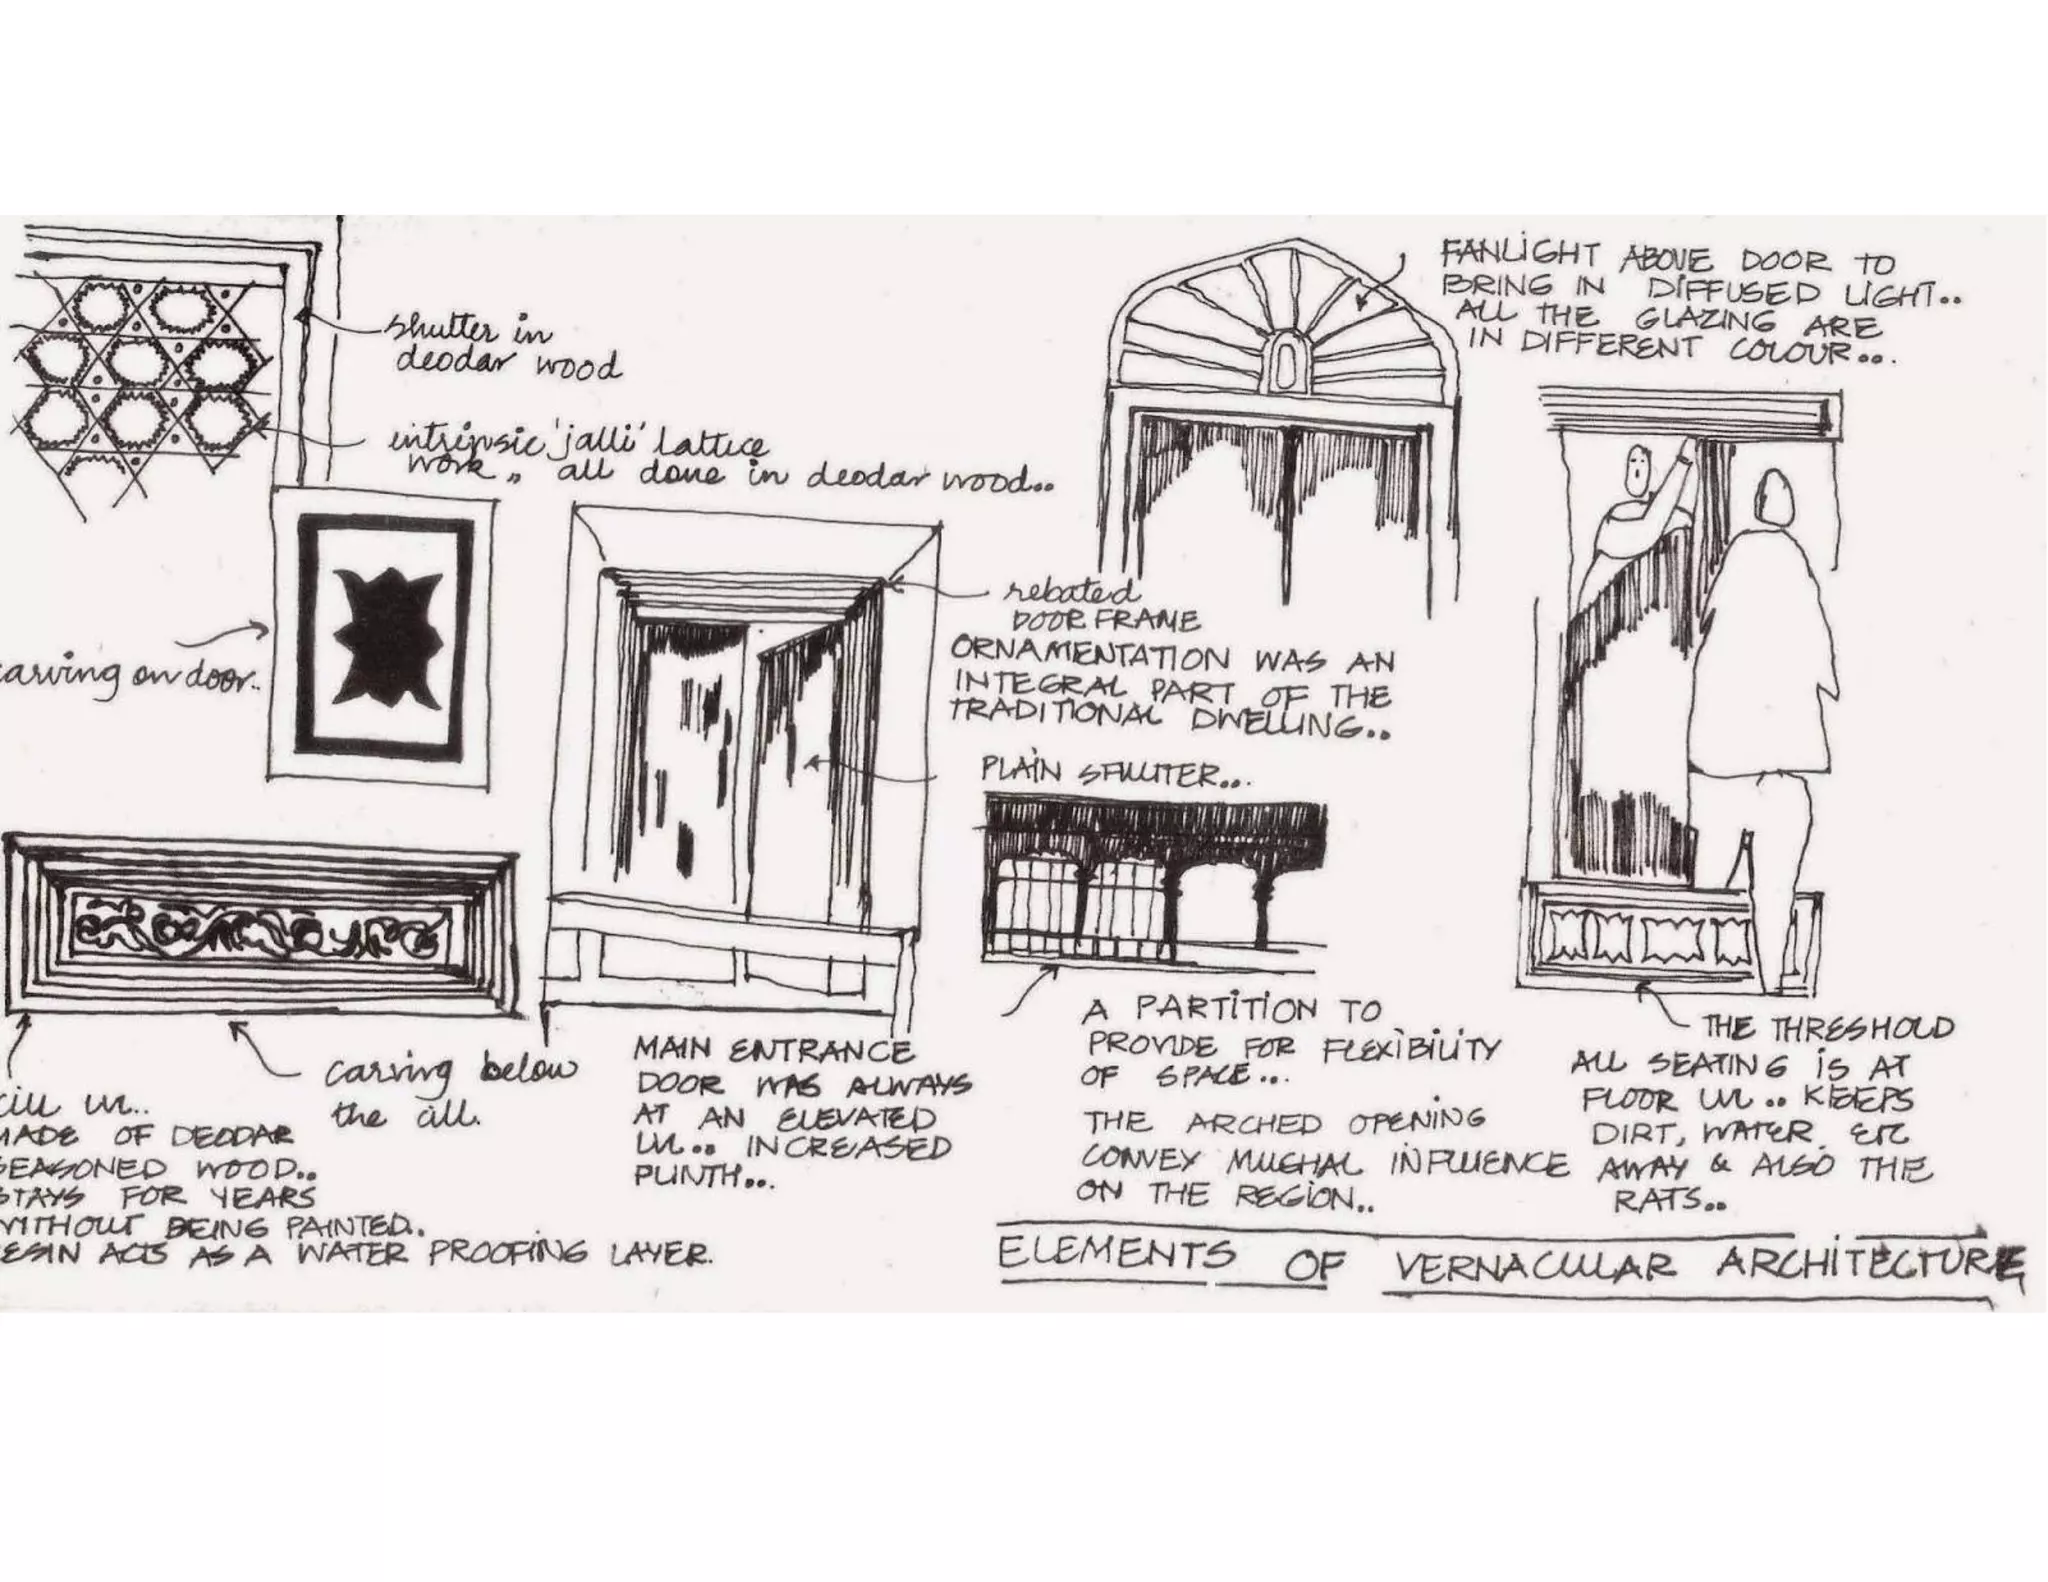 shutter in
deodar wood
intrinsic 'jalli' lattice
work,, all done in deodar wood..
carving on door..
FANLIGHT ABOVE DOOR TO
BRING IN DIFFUSED LIGHT..
ALL THE GLAZING ARE
IN DIFFERENT COLOUR...
rebated
DOOR FRAME
ORNAMENTATION WAS AN
INTEGRAL PART OF THE
TRADITIONAL DWELLING..
PLAIN SHUTTER...
carving below
the cill.
CILL LVL..
MADE OF DEODAR
SEASONED WOOD..
STAYS FOR YEARS
WITHOUT BEING PAINTED..
RESIN ACTS AS A WATER PROOFING LAYER.
MAIN ENTRANCE
DOOR WAS ALWAYS
AT AN ELEVATED
LVL.. INCREASED
PLINTH...
A PARTITION TO
PROVIDE FOR FLEXIBILITY
OF SPACE...
THE ARCHED OPENING
CONVEY MUGHAL INFLUENCE
ON THE REGION..
THE THRESHOLD
ALL SEATING IS AT
FLOOR LVL.. KEEPS
DIRT, WATER, ETC
AWAY & ALSO THE
RATS..
ELEMENTS OF VERNACULAR ARCHITECTURE